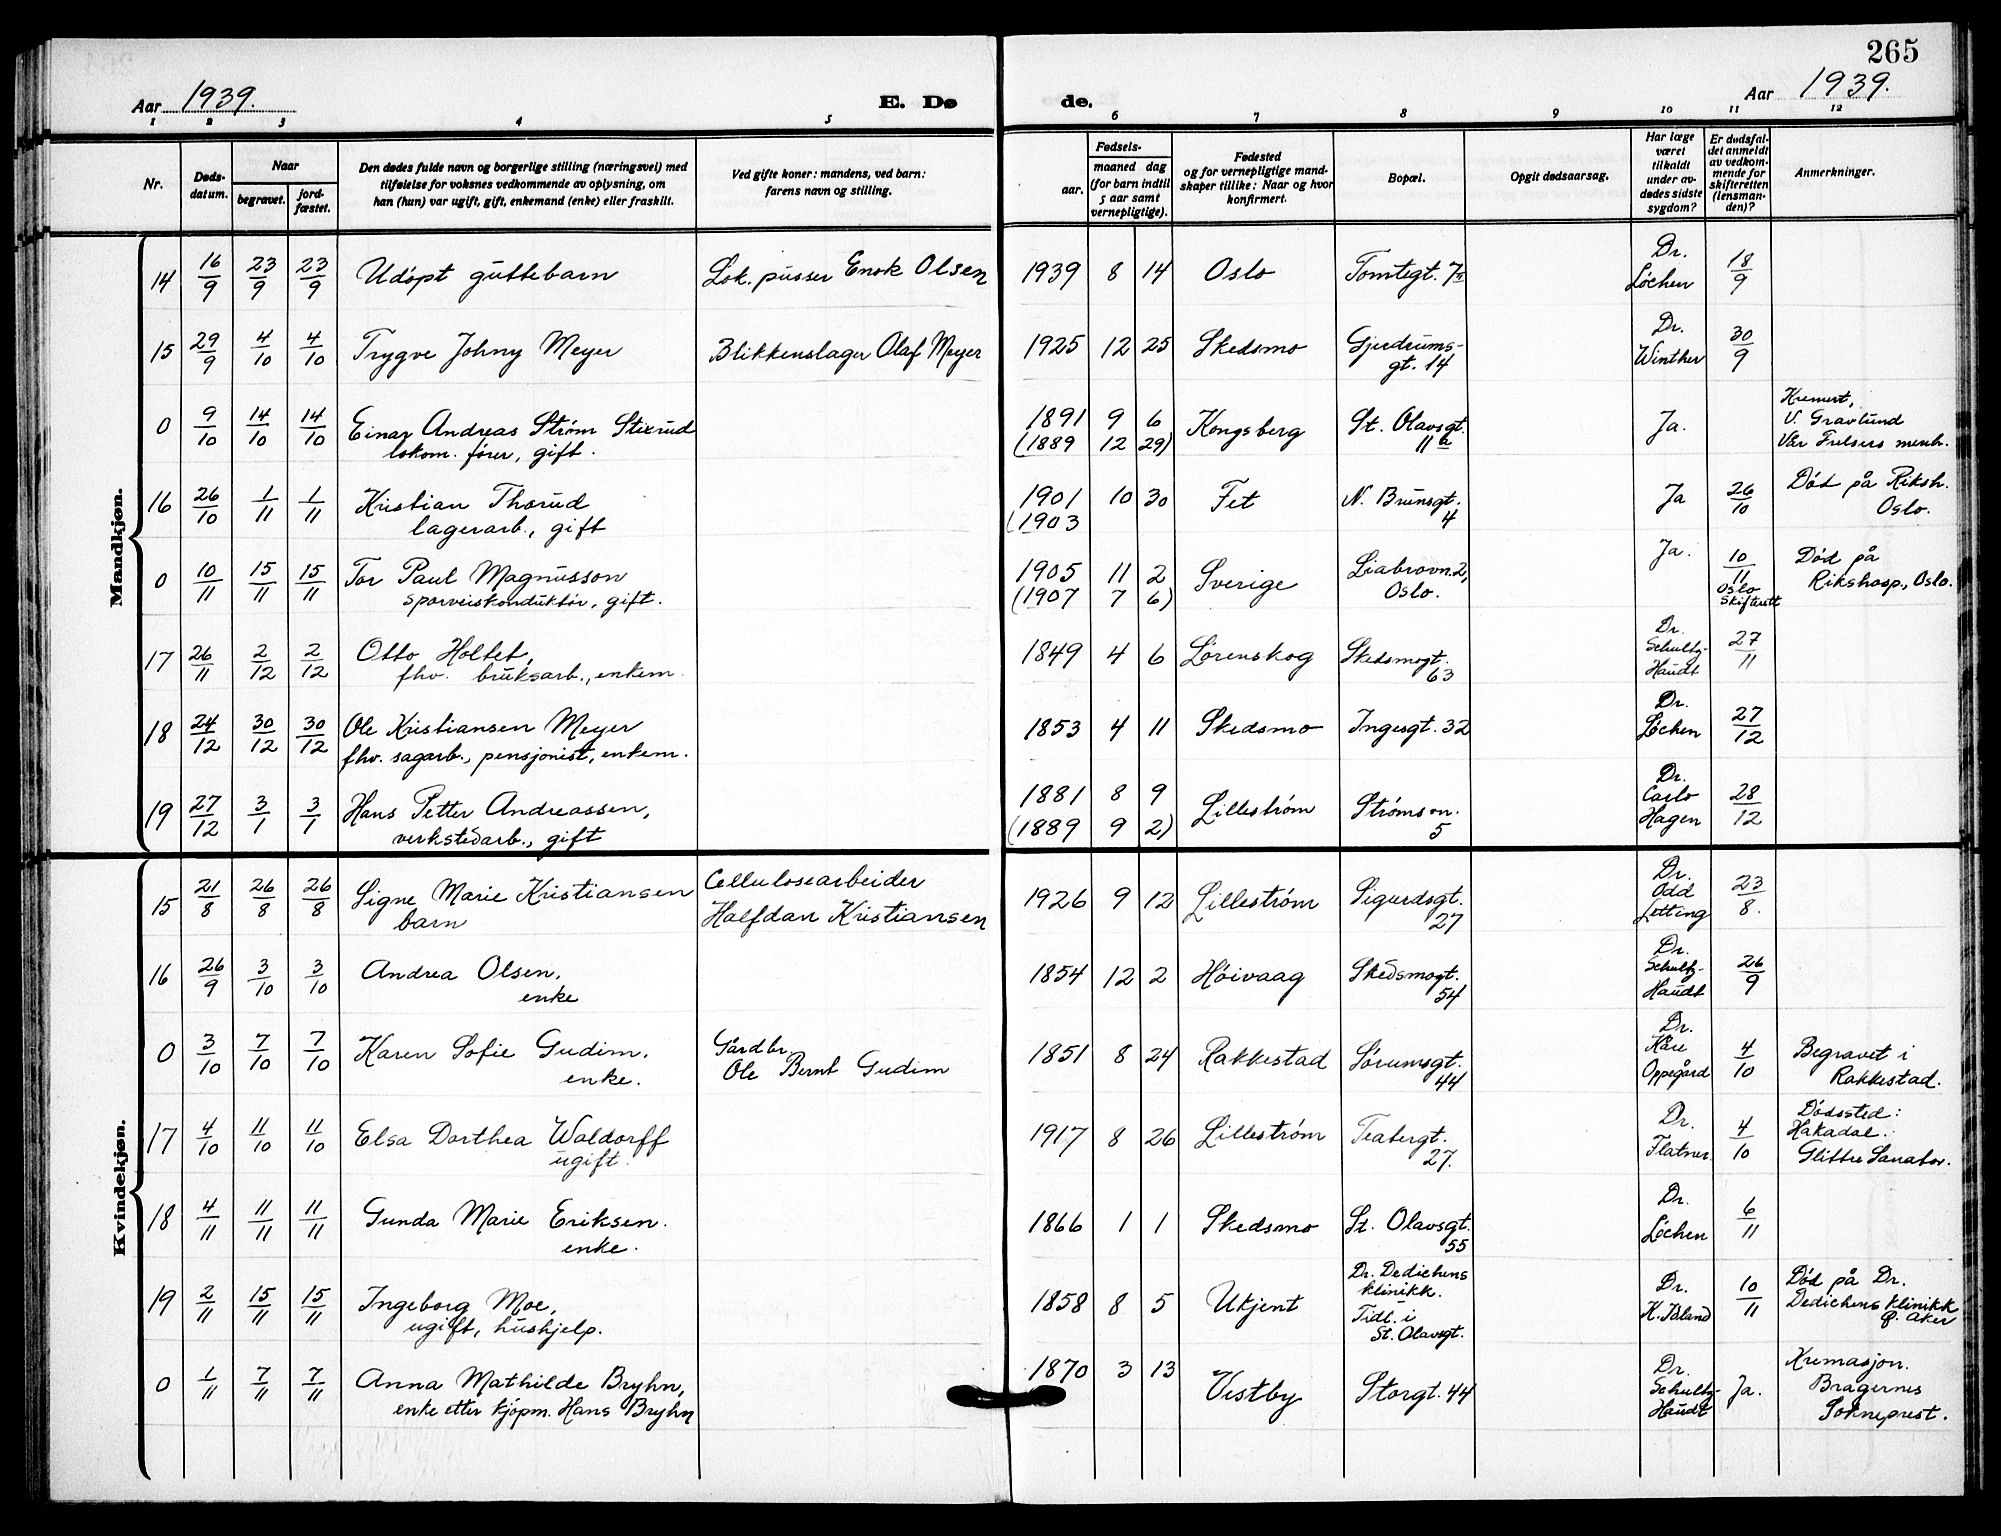 265
Aar 1939. E. Dø de. Aar 1939.
1 2 3 4 5 6 7 8 9 10 11 12
Nr.
Døds-
datum.
Naar
begravet.
jord-
fæstet.
Den dødes fulde navn og borgerlige stilling (næringsvei) med
tilføielse for voksnes vedkommende av oplysning, om
han (hun) var ugift, gift, enkemand (enke) eller fraskilt.
Ved gifte koner: mandens, ved barn:
farens navn og stilling.
Fødsels-
aar.
maaned dag
(for barn indtil
5 aar samt
vernepligtige).
Fødested
og for vernepligtige mand-
skaper tillike: Naar og hvor
konfirmert.
Bopæl.
Opgit dødsaarsag.
Har læge
været
tilkaldt
under av-
dødes sidste
sygdom?
Er dødsfal-
det anmeldt
av vedkom-
mende for
skifteretten
(lensman-
den)?
Anmerkninger.
Mandkjøn.
14 16/9 23/9 23/9 Udöpt guttebarn Lok. pusser Enok Olsen 1939 8 14 Oslo Tomtegt. 7II Dr. Løchen 18/9
15 29/9 4/10 4/10 Trygve Johny Meyer Blikkenslager Olaf Meyer 1925 12 25 Skedsmo Gjerdrums-
gt. 14 Dr. Winther 30/9
0 9/10 14/10 14/10 Einar Andreas Strøm Stixrud
lokom. fører, gift. 1891 9 6
(1889 12 29) Kongsberg St. Olavsgt.
11a Ja. Kremert,
V. Gravlund
Vår Frelsers menh.
16 26/10 1/11 1/11 Kristian Thorud
lagerarb., gift 1901 10 30
(1903 Fet N. Brunsgt.
4 Ja 26/10 Död på Riksh.
Oslo.
0 10/11 15/11 15/11 Tor Paul Magnusson
sporveiskonduktör, gift. 1905 11 2
(1907 7 6) Sverige Liabrovn. 2,
Oslo. Ja. 10/11
Oslo
skifterett Död på
Rikshosp., Oslo.
17 26/11 2/12 2/12 Otto Holtet,
fhv. bruksarb., enkem. 1849 4 6 Lørenskog Skedsmogt.
63 Dr.
Schultz-
Haudt 27/11
18 24/12 30/12 30/12 Ole Kristiansen Meyer
fhv. sagarb., pensjonist, enkem. 1853 4 11 Skedsmo Ingesgt. 32 Dr.
Løchen 27/12
19 27/12 3/1 3/1 Hans Petter Andreassen,
verkstedarb., gift 1881 8 9
(1889 9 2) Lillestrøm Strømsvn.
5 Dr.
Carlo
Hagen 28/12
Kvindekjøn.
15 21/8 26/8 26/8 Signe Marie Kristiansen
barn Cellulosearbeider
Halfdan Kristiansen 1926 9 12 Lillestrøm Sigurdsgt.
27 Dr.
Odd
Letting 23/8.
16 26/9 3/10 3/10 Andrea Olsen,
enke 1854 12 2 Höivaag Skedsmogt.
54 Dr.
Schultz-
Haudt 26/9
0 3/10 7/10 7/10 Karen Sofie Gudim.
enke. Gårdbr.
Ole Bernt Gudim 1851 8 24 Rakkestad Sørumsgt.
44 Dr.
Kåre
Oppegård 4/10 Begravet i
Rakkestad.
17 4/10 11/10 11/10 Elsa Dorthea Waldorff
ugift. 1917 8 26 Lillestrøm Teatergt.
27. Dr.
Flatner. 4/10 Dödssted:
Hakadal.
Glittre Sanator.
18 4/11 11/11 11/11 Gunda Marie Eriksen.
enke. 1866 1 1 Skedsmo St. Olavsgt.
55 Dr.
Løchen 6/11
19 2/11 15/11 15/11 Ingeborg Moe,
ugift, hushjelp. 1858 8 5 Ukjent Dr. Dedichens
klinikk.
Tidl. i
St. Olavsgt. Dr. 10/11 Död på Dr.
Dedichens klinikk
Ø. Aker
0 1/11 7/11 7/11 Anna Mathilde Bryhn,
enke etter kjøpm. Hans Bryhn 1870 3 13 Vestby Storgt. 44 Dr.
Schultz-
Haudt Ja. Kremasjon.
Bragernes
Sokneprest.